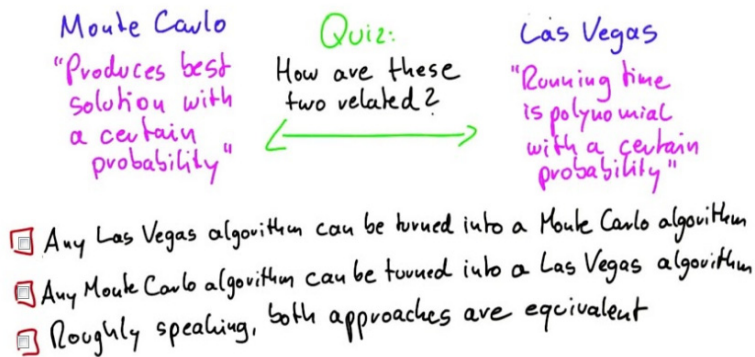 Monte Carlo
"Produces best
solution with
a certain
probability"
Quiz:
How are these
two related?
Las Vegas
"Running time
is polynomial
with a certain
probability"
Any Las Vegas algorithm can be turned into a Monte Carlo algorithm
Any Monte Carlo algorithm can be turned into a Las Vegas algorithm
Roughly speaking, both approaches are equivalent